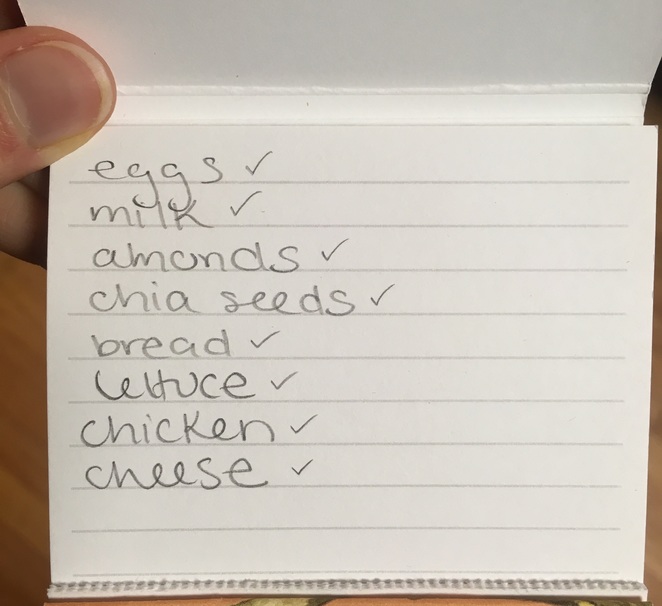 eggs ✓
milk ✓
almonds ✓
chia seeds ✓
bread ✓
lettuce ✓
chicken ✓
cheese ✓